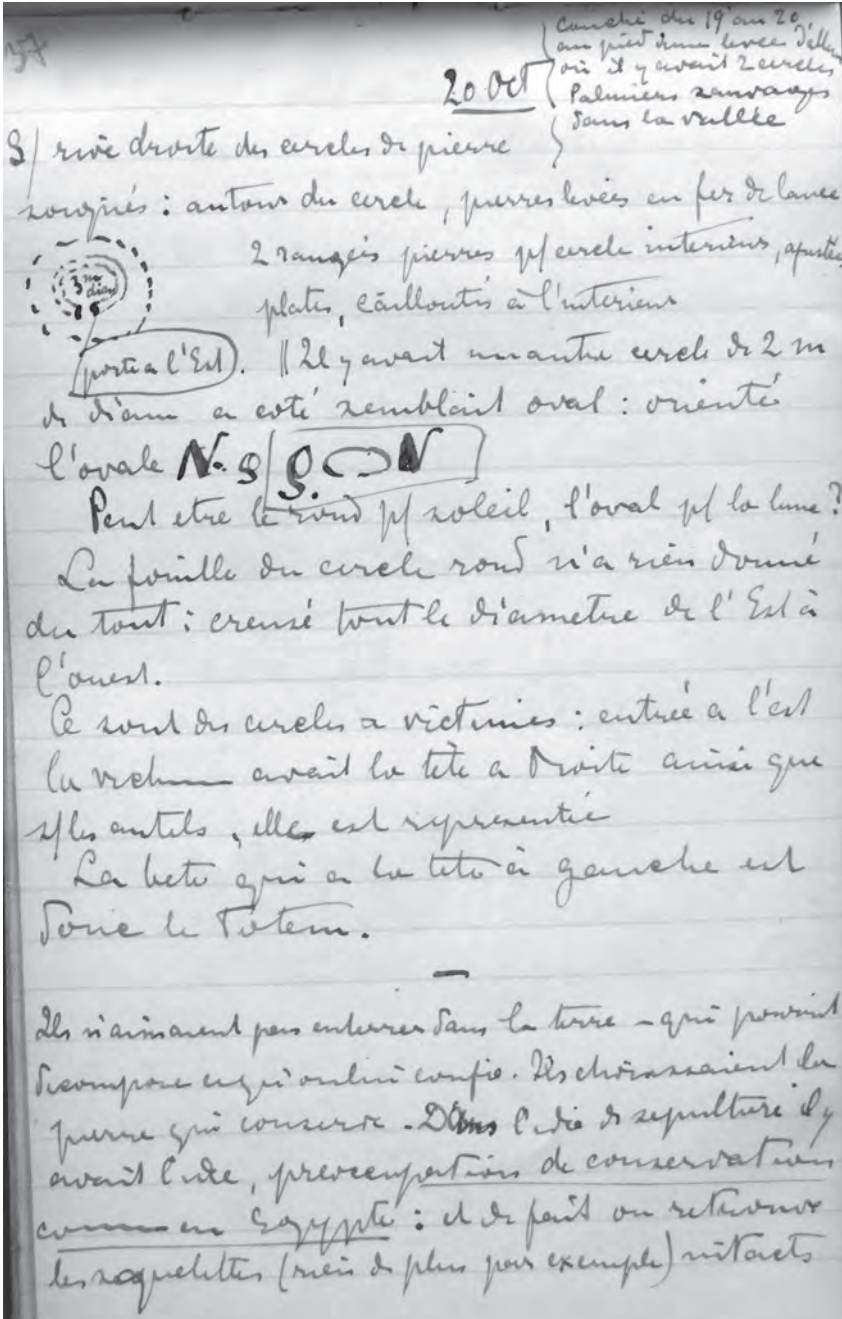 37
Couché du 19 au 20
au pied d'une levée d'allu
où il y avait 2 cercles
Palmiers sauvages
dans la vallée
20 Oct
S/ rive droite des cercles de pierre
soignés : autour du cercle, pierres levées en fer de lance
2 rangées pierres p/ cercle interieur, ajustées
plates, cailloutis à l'interieur
3 m
diam
porte a l'Est. || Il y avait un autre cercle de 2 m
de diam a coté semblait oval : orienté
l'ovale N. S/ S. N
Peut etre le rond p/ soleil, l'oval p/ la lune ?
La fouille du cercle rond n'a rien donné
du tout : creusé tout le diametre de l'Est à
l'ouest.
Ce sont des cercles a victimes : entrée a l'est
la victime avait la tête a droite ainsi que
s/ les autels, elle est representée
La bete qui a la tete à gauche est
donc le Totem.
Ils n'aimaient pas enterrer dans la terre - qui pourrit
decompose ce qu'on lui confie. Ils choisissaient la
pierre qui conserve - Dans l'idée de sepulture il y
avait l'idée, preoccupation de conservation
comme en Egypte : et de fait on retrouve
les squelettes (rien de plus par exemple) intacts